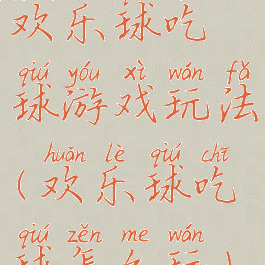 欢乐球吃
qiú yóu xì wán fǎ
球游戏玩法
huān lè qiú chī
（欢乐球吃
qiú zěn me wán
球怎么玩）